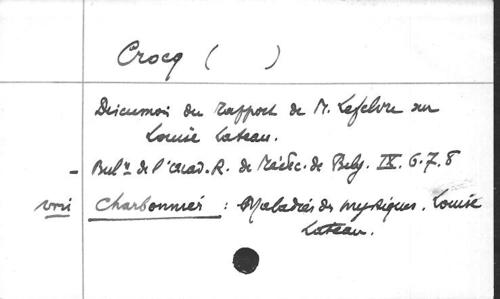 Crocq ( )
Discussion du rapport de M. Lefebvre sur
Louise Lateau.
- Bulⁿ de l'Acad. R. de Médec. de Belg. IX. 6.7.8
voir Charbonnier : Maladies des mystiques. Louise
Lateau.